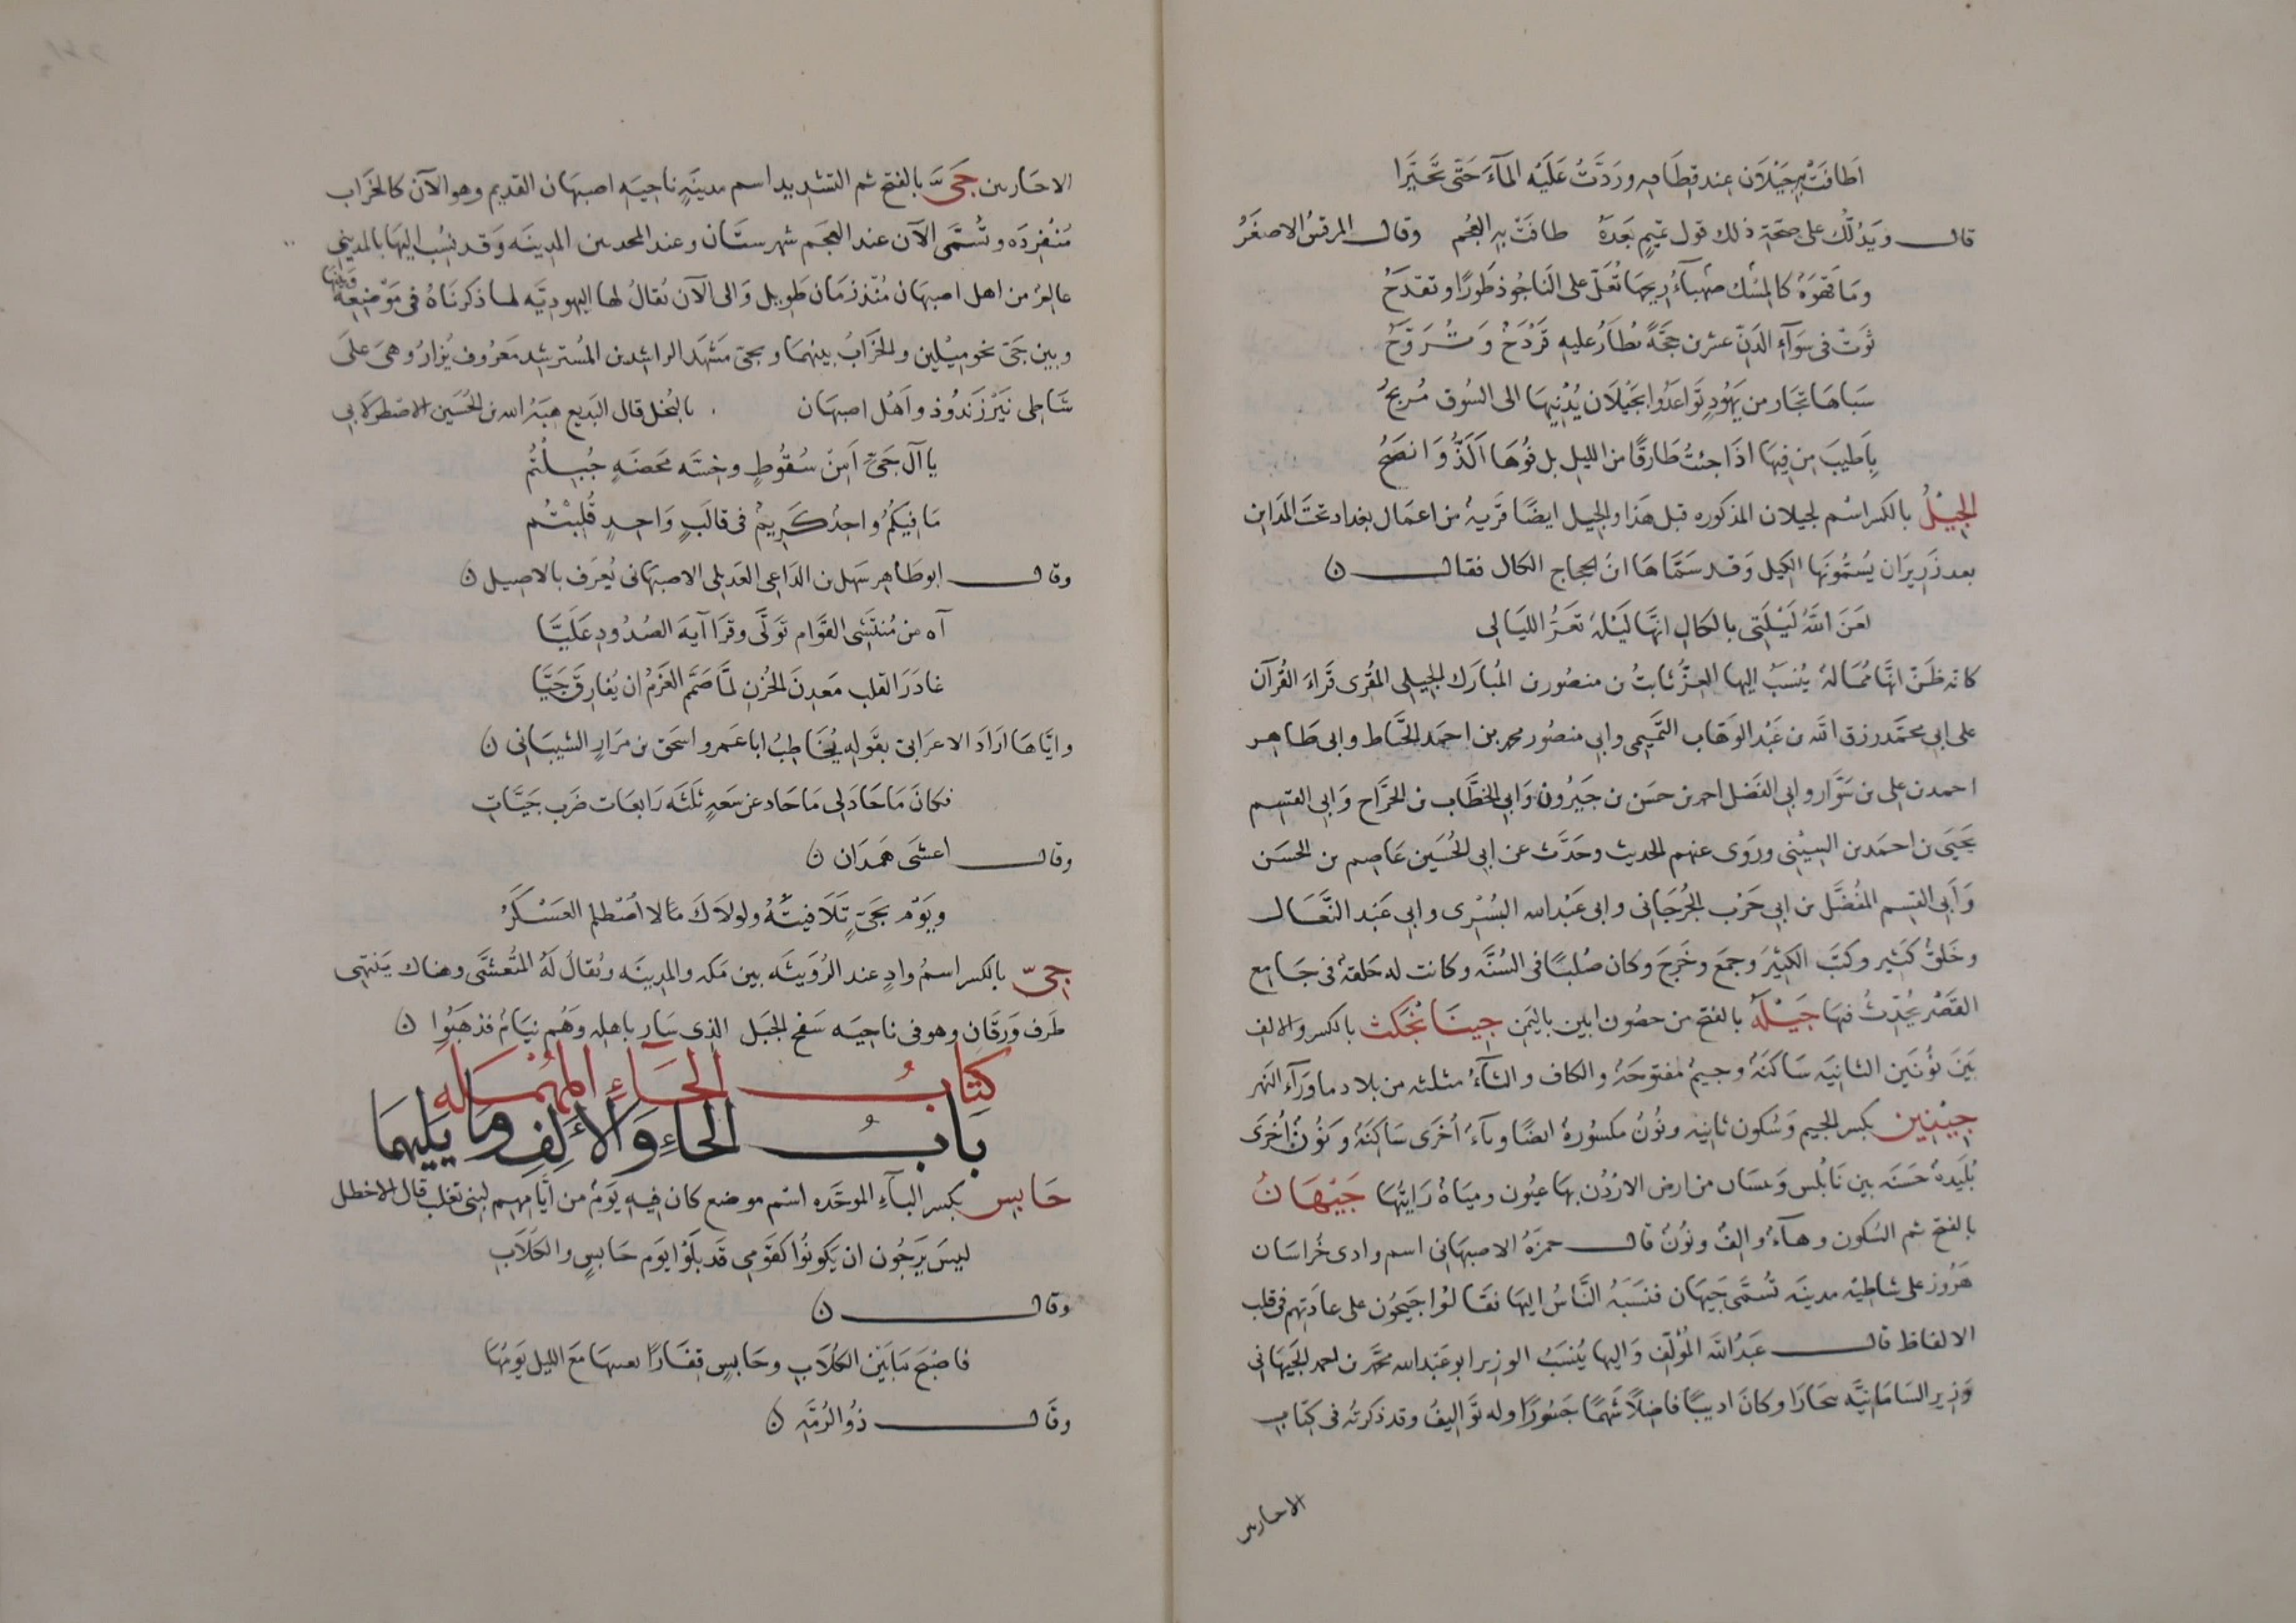 اَطَافَتْ بِهِ جَيْلَان عِند قِطَافِهِ وردَّتْ عَلَيْه المآءَ حَتّى تَحَيَّرا
قال ويَدُلّك على صِحّة ذلك قول تميم بَعدَهُ طافَتْ به العُجم وقال المرقش الاصغَرُ
ومَا قَهوَةٌ كالمِسْك صَهبآءُ ريحهَا تُعَلّ على النَاجُوذ طَورًا وتقدَحُ
ثوَتْ فى سَوَآءِ الدَنّ عشرن حِجّةً يطَارُ عليه قَرْدَحٌ وَتُرَوَّحُ
سَباهَا تجَار من يَهُودٍ تَوَاعَدُوا بجَيْلَان يُدْنيهَا الى السُوق مُربحُ
بِاَطيبَ مِن فِيهَا اذَا جئتُ طَارقًا من الليل بل فُوهَا اَلَذُّ وَانصَحُ
الجِيْلُ بالكسر اسْم لجيلان المذكوره قبل هَذا والجيل ايضًا قَريهٌ من اعمَال بغداد تحتَ المدَاين
بعد زَرِيرَان يُسَمُّونَهَا الكِيل وَقد سَمَّاهَا ابنُ الحجاج الكال فقال ن
لعَنَ اللّهُ لَيْلَتى بالكَالِ انهَّا لَيْلهٌ تعَرُّ الليَالى
كانه ظَنّ انهّا مُمَالهٌ يُنسَبُ اليها العِزُّ ثابتُ بن منصُور بن المُبارَك الجِيلى المقُرى قَراءَ القُرآن
على ابى محمّد رزق الله بن عَبْد الوَهّاب التَّميمى وابى منصُور محمد بن احمَد الخيَّاط وابى طَاهِر
احمد بن على بن سَوّار وابى الفَضل احمد بن حسَن بن خيرُون وَابى الخطّاب بن الجَرَّاح وَابى القسِم
يَحيَى بن احمَد بن السِيْبى وروَى عنهم الحديث وحَدّثَ عن ابى الحُسَين عَاصِم بن الحسَن
وَابى القسِم المُفضَّل بن ابى حَرْب الجُرجَانى وابى عَبْد الله البُسْرى وابى عَبْد النَّعال
وخَلقٌ كثير وكتَبَ الكثيرَ وجمعَ وخَرجَ وكان صُلبًا فى السُنَّه وكانت له حَلقهٌ فى جَامِع
القَصْر يُحَدِّثُ فيها جَيْلَهُ بالفتح من حصُون ابين باليَمَن جِينَا نْجَكث بالكسر والالف
بَينَ نوُنَين الثانيَه سَاكنَهٌ وجيمٌ مفتوحَهٌ والكاف والثآءُ مثلثه من بلاد ما وَرَآء النهر
جِيْنِين بكسر الجيم وَسُكون ثانيه ونُونٌ مكسُورهٌ ايضًا وياءٌ اُخرَى سَاكنَهٌ وَنُونٌ اُخرَى
بُلَيدهٌ حَسَنَه بين نَابُلس وَبيسَان من ارض الاردُن بهَا عيُون وميَاهٌ رَايتُهَا جَيْهَانُ
بالفتح ثم السُكون وهآءٌ والفٌ ونُونٌ قال حمزَهُ الاصبهَانى اسم وادى خُراسَان
هَرُوز على شاطيْه مدينَه تُسمَّى جَيهان فنَسَبَهُ النَّاسُ اليهَا فقَالوُا جَيحُون على عادَتهم فى قلب
الالفاظ قال عَبدُ اللّه المُؤلّف وَاليها يُنسَبُ الوزير ابو عَبد الله محمّد بن احمد الجَيهَانى
وَزِير السَامَانِيَّه ببخارَا وكانَ اديبًا فاضِلاً شَهمًا جَسُورًا وله توَاليفُ وقد ذكرتُه فى كتَابِ
الاخبارين
الاخبارين جَىُّ بالفتح ثم التشديد اسم مدينَهِ ناحِيَهِ اصبهَان القديم وهو الآن كالخَراب
مُنْفِردَه وتُسمَّى الآن عند العجَم شهرستَان وعند المحدثين المدِينَه وَقد نسُبَ اليهَا بالمدينى
عالمٌ من اهل اصبهَان مُنْذ زمَان طَويل وَالى الآن يُقالُ لها اليهوديّه لما ذكرنَاهُ فى مَوْضِعِهِ وَبينهَا
وبين جَىّ نحو ميْلين والخَرَابُ بينهمَا وبجىّ مَشهدُ الراشِد بن المُسترشِد مَعرُوف يُزارُ وهىَ على
شَاطِى نهر زَندرُوذ واَهْل اصبهَان بالبُخل قال البَديع هِبَهُ الله بن الحُسَين الاصطرلابى
يا آل جَىٍّ اَمِنْ سُقُوطٍ وخِسّه مَحضَهٍ جُبِلْتُم
مَا فِيكُمُ واحِدٌ كَرِيمٌ فى قالَبٍ وَاحِدٍ قُلِبْتُم
وقال ابو طَاهِر سَهل بن الدَاعى العَدبلى الاصبهَانى يُعرَف بالاصِيل ن
آه من مُنتَشى القوَام تَولَّى وقرَا آيهَ الصُدُودِ عَلَيَّا
غادَرَ القلب مَعدِنَ الحُزنِ لمَّا صَمَّم العَزمُ ان يُفارِقَ جَيَّا
وايّاهَا ارَادَ الاعرَابى بقَوله يُخَاطِبُ ابا عَمرو اسحَق بن مرَارٍ الشيبَانى ن
فكانَ مَا جَادَ لى مَا جَاد عن سَعَهٍ ثلثَه زايفات ضَرب جَيَّاتِ
وقال اعشَى همَدَان ن
ويَوم بجَىٍّ تَلَافيتُهُ ولولَاكَ مَا لا اصْطلم العَسْكرُ
جِىّ بالكسر اسمُ وادٍ عند الرُوَيثَه بين مَكه والمدِينَه ويُقالُ لَهُ المتُعَشَّى وهناك يَنتهى
طَرف وَرقَان وهو فى ناحِيَه سَفح الجَبل الذى سَار باهله وَهُم نيَامٌ فذهَبُوا ن
كِتابُ الحَاءِ المُهْمَله
بَابُ الحَاءِ وَالالِفِ ومَا يَلِيهمَا
حَابِس بكسر البآءِ الموحَّده اسْم موضع كان فيهِ يَومٌ من ايّامِهِم لبنى تغلب قال الاخطل
ليسَ يَرجُون ان يَكونُوا كقَومِى قَد بَلَوْا يوَم حَابسٍ والكُلَابِ
وقال ن
فاصْبَحَ مَا بَيْن الكُلَابِ وحَابسٍ قِفَارًا مَعَ الليل بَومُهَا
وقَال ذُو الرُمَّهِ ن